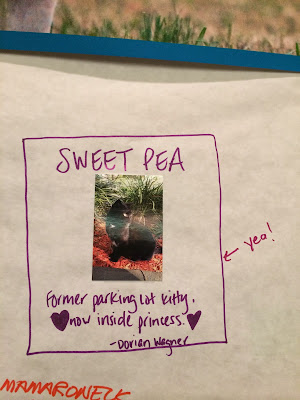 SWEET PEA
← yea!
Former parking lot kitty,
now inside princess.
-Dorian Wagner
MAMARONECK